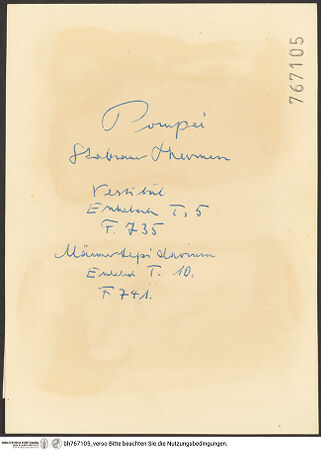 767105
Pompei
Stabianer Thermen
Vestibül
Eschebach T. 5
F. 735
Männertepidarium
Eschebach T. 10.
F 741.
bh767105_verso Bitte beachten Sie die Nutzungsbedingungen.